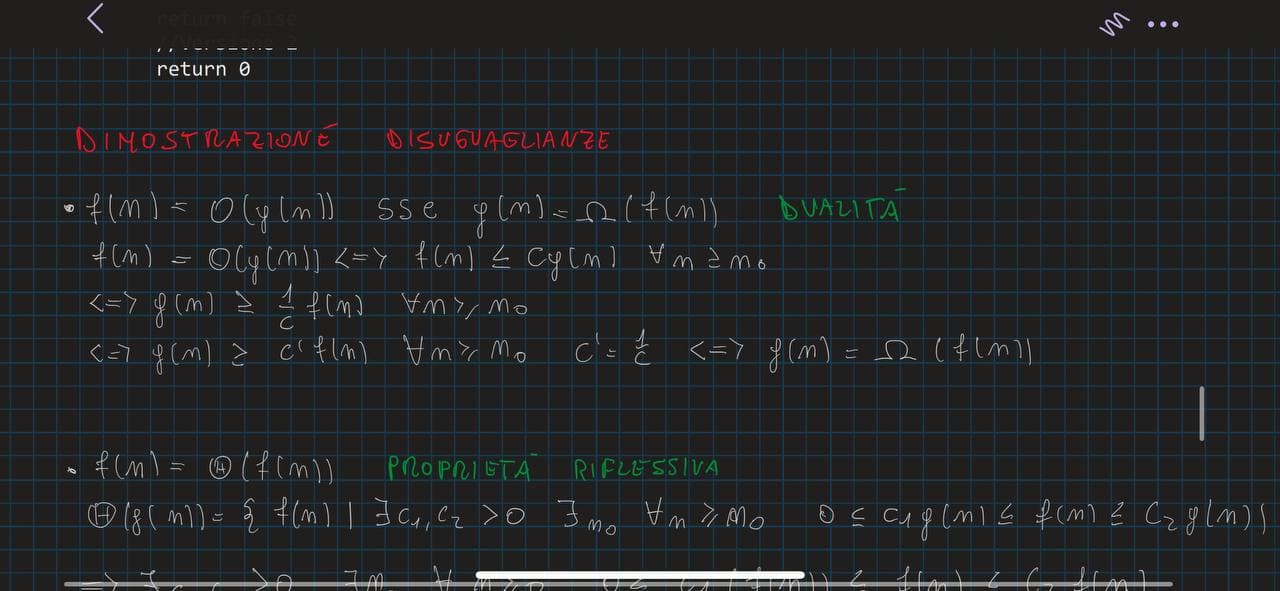 return false
//Versione 2
return 0
DIMOSTRAZIONE DISUGUAGLIANZE
• f(n) = O(g(n)) sse g(n) = Ω(f(n)) DUALITÀ
f(n) = O(g(n)) <=> f(n) ≤ Cg(n) ∀n ≥ n₀
<=> g(n) ≥ 1/c f(n) ∀n ≥ n₀
<=> g(n) ≥ c' f(n) ∀n ≥ n₀ c' = 1/c <=> g(n) = Ω(f(n))
• f(n) = Θ(f(n)) PROPRIETÀ RIFLESSIVA
Θ(g(n)) = { f(n) | ∃ c₁, c₂ > 0 ∃ n₀ ∀n ≥ n₀ 0 ≤ c₁g(n) ≤ f(n) ≤ c₂g(n)}